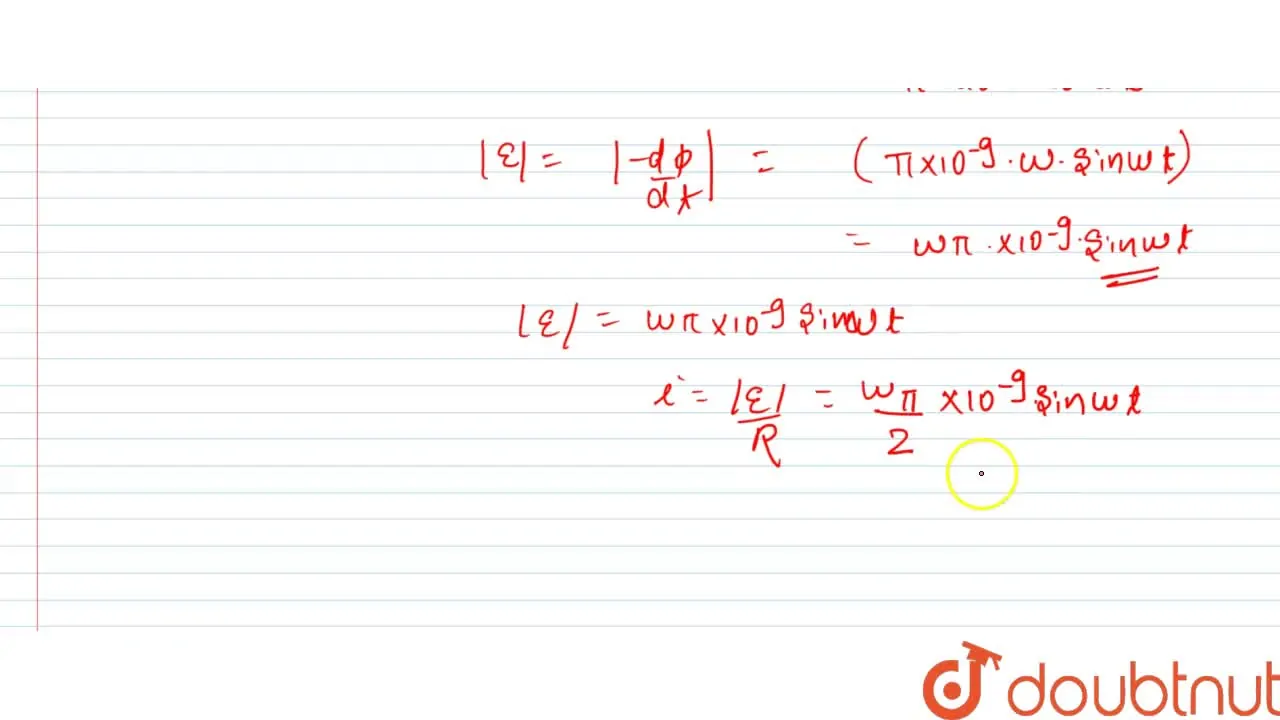 |ε| = |-dφ/dt| = (π×10⁻⁹·ω·sinωt)
= ωπ·×10⁻⁹·sinωt
|ε| = ωπ×10⁻⁹ sinωt
i = |ε|/R = ωπ/2 ×10⁻⁹ sinωt
doubtnut